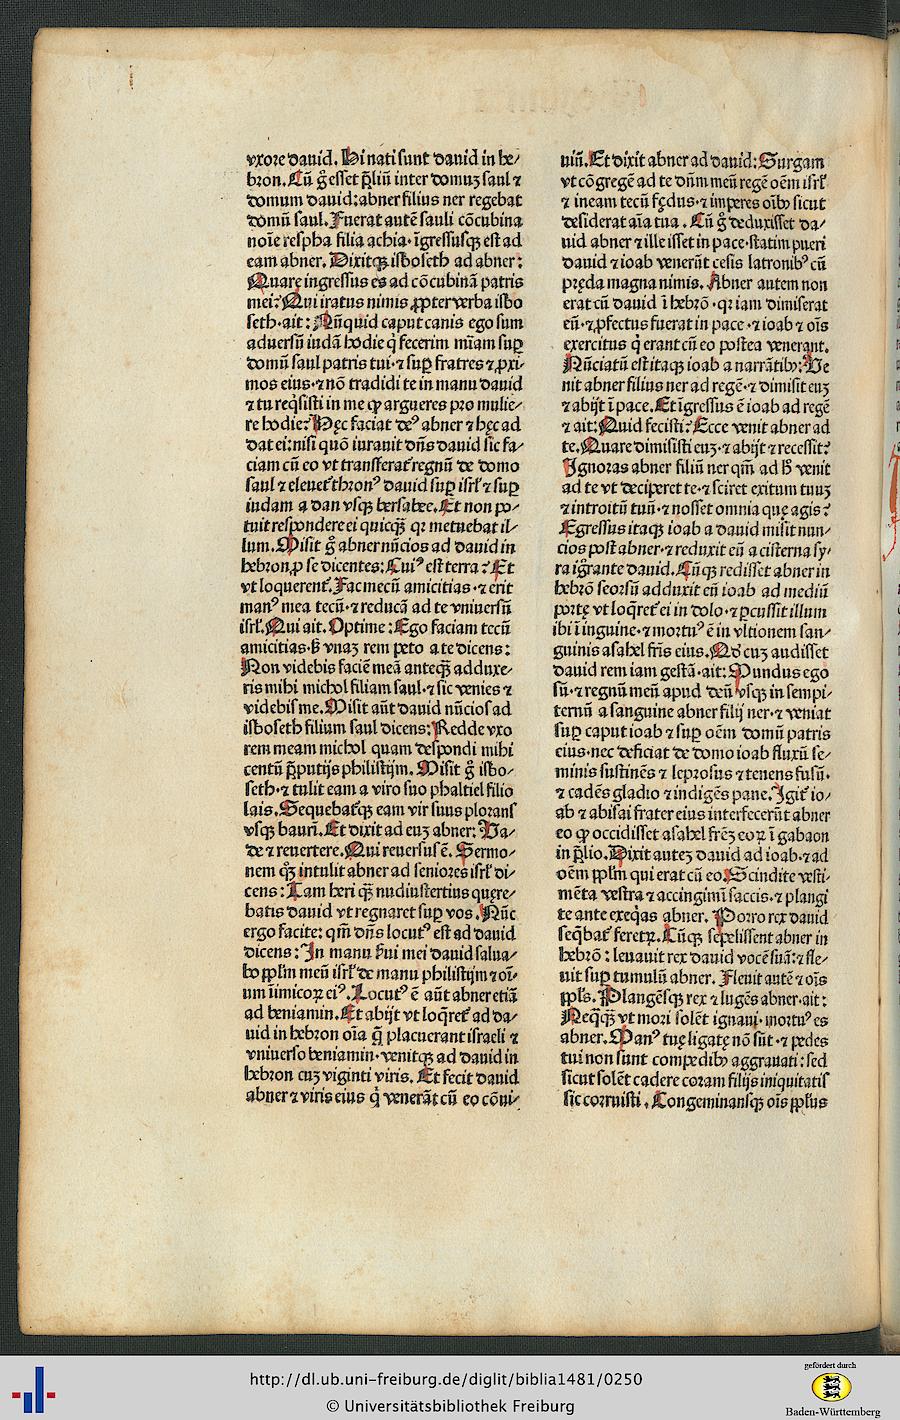 vxore dauid. Hi nati sunt dauid in he⸗
bron. Cū g̊ esset p̄liū inter domuꝫ saul ⁊
domum dauid: abner filius ner regebat
domū saul. Fuerat autē sauli cōcubina
noīe respha filia achia· īgressusqꝫ est ad
eam abner. Dixitqꝫ isboseth ad abner:
Quare ingressus es ad cōcubinā patris
mei? Qui iratus nimis ꝓpter verba isbo
seth·ait: Nūquid caput canis ego sum
aduersū iudā hodie q̇ fecerim mīam suꝑ
domū saul patris tui·⁊ suꝑ fratres ⁊ ꝓxi⸗
mos eius·⁊ nō tradidi te in manu dauid
⁊ tu reqͥsisti in me ꝙ argueres pro mulie⸗
re hodie? Hęc faciat deꝰ abner ⁊ hęc ad
dat ei: nisi quō iurauit dn̄s dauid sic fa⸗
ciam cū eo vt transferat᷑ regnū de domo
saul ⁊ eleuet᷑ thronꝰ dauid suꝑ isrl̓ ⁊ suꝑ
iudam a dan vsqꝫ bersabee. Et non po⸗
tuit respondere ei quicqꝫ̄ qꝛ metuebat il⸗
lum. Misit g̊ abner nūcios ad dauid in
hebron ꝓ se dicentes: Cuiꝰ est terra? Et
vt loquerent᷑. Fac mecū amicitias·⁊ erit
manꝰ mea tecū·⁊ reducā ad te vniuersū
isrl̓. Qui ait. Optime: Ego faciam tecū
amicitias·sꝫ vnaꝫ rem peto a te dicens:
Non videbis faciē meā anteqꝫ̄ adduxe⸗
ris mihi michol filiam saul·⁊ sic venies ⁊
videbis me. Misit aūt dauid nūcios ad
isboseth filium saul dicens: Redde vxo
rem meam michol quam despondi mihi
centū p̄putijs philistijm. Misit g̊ isbo⸗
seth·⁊ tulit eam a viro suo phaltiel filio
lais. Sequebat᷑qꝫ eam vir suus plorans
vsqꝫ baurī. Et dixit ad euꝫ abner: Va⸗
de ⁊ reuertere. Qui reuersus ē. Sermo⸗
nem qꝫ̊ intulit abner ad seniores isrl̓ di⸗
cens: Tam heri qꝫ̄ nudiustertius quęre⸗
batis dauid vt regnaret suꝑ vos. Nūc
ergo facite: qm̄ dn̄s locutꝰ est ad dauid
dicens: In manu ẜui mei dauid salua⸗
bo pp̄lm meū isrl̓ de manu philistijm ⁊ oī⸗
um īimicoꝝ eiꝰ. Locutꝰ ē aūt abner etiā
ad beniamin. Et abijt vt loq̄ret᷑ ad da⸗
uid in hebron oīa q̄ placuerant israeli ⁊
vniuerso beniamin·venitqꝫ ad dauid in
hebron cuꝫ viginti viris. Et fecit dauid
abner ⁊ viris eius q̇ venerāt cū eo cōui⸗
uiū. Et dixit abner ad dauid: Surgam
vt cōgregē ad te dn̄m meū regē oēm isrl̓
⁊ ineam tecū fędus·⁊ imperes oībꝫ sicut
desiderat aīa tua. Cū g̊ deduxisset da⸗
uid abner ⁊ ille isset in pace·statim pueri
dauid ⁊ ioab venerūt cesis latronibꝰ cū
pręda magna nimis. Abner autem non
erat cū dauid ī hebrō·qꝛ iam dimiserat
eū·⁊ ꝓfectus fuerat in pace·⁊ ioab ⁊ oīs
exercitus q̇ erant cū eo postea venerant.
Nūciatū est itaqꝫ ioab a narrātibꝫ: Ve
nit abner filius ner ad regē·⁊ dimisit euꝫ
⁊ abijt ī pace. Et īgressus ē ioab ad regē
⁊ ait: Quid fecisti? Ecce venit abner ad
te. Quare dimisisti euꝫ·⁊ abijt ⁊ recessit?
Ignoras abner filiū ner qm̄ ad h̊ venit
ad te vt deciperet te·⁊ sciret exitum tuuꝫ
⁊ introitū tuū·⁊ nosset omnia quę agis?
Egressus itaqꝫ ioab a dauid misit nun⸗
cios post abner·⁊ reduxit eū a cisterna sy⸗
ra ig̅rante dauid. Cūqꝫ redisset abner in
hebrō seorsū adduxit eū ioab ad mediū
portę vt loq̄ret᷑ ei in dolo·⁊ ꝑcussit illum
ibi ī inguine·⁊ mortuꝰ ē in vltionem san⸗
guinis asahel frīs eius. Qd̓ cuꝫ audisset
dauid rem iam gestā·ait: Mundus ego
sū·⁊ regnū meū apud deū vsqꝫ in sempi⸗
ternū a sanguine abner filij ner·⁊ veniat
suꝑ caput ioab ⁊ suꝑ oēm domū patris
eius·nec deficiat de domo ioab fluxū se⸗
minis sustinēs ⁊ leprosus ⁊ tenens fusū·
⁊ cadēs gladio ⁊ indigēs pane. Igit᷑ io⸗
ab ⁊ abisai frater eius interfecerūt abner
eo ꝙ occidisset asahel frēꝫ eoꝝ ī gabaon
in p̄lio. Dixit auteꝫ dauid ad ioab·⁊ ad
oēm pp̄lm qui erat cū eo. Scindite vesti⸗
mēta vestra ⁊ accingimī saccis·⁊ plangi
te ante exeq̇as abner. Porro rex dauid
seq̄bat᷑ feretꝝ. Cūqꝫ sepelissent abner in
hebrō: leuauit rex dauid vocē suā: ⁊ fle⸗
uit suꝑ tumulū abner. Fleuit autē ⁊ oīs
pp̄ls. Plangēsqꝫ rex ⁊ lugēs abner·ait:
Neq̄qꝫ̄ vt mori solēt ignaui·mortuꝰ es
abner. Manꝰ tuę ligatę nō sūt·⁊ pedes
tui non sunt compedibꝫ aggrauati: sed
sicut solēt cadere coram filijs iniquitatis
sic corruisti. Congeminansqꝫ oīs pp̄lus
http://dl.ub.uni-freiburg.de/diglit/biblia1481/0250
© Universitätsbibliothek Freiburg
gefördert durch
Baden-Württemberg